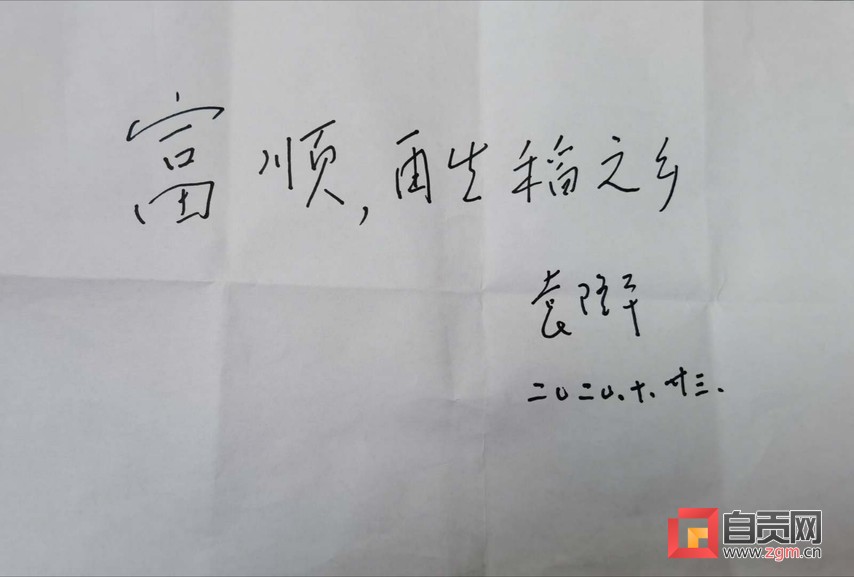 富顺，再生稻之乡
袁隆平
二〇二〇.十.廿三.
自贡网
www.zgm.cn